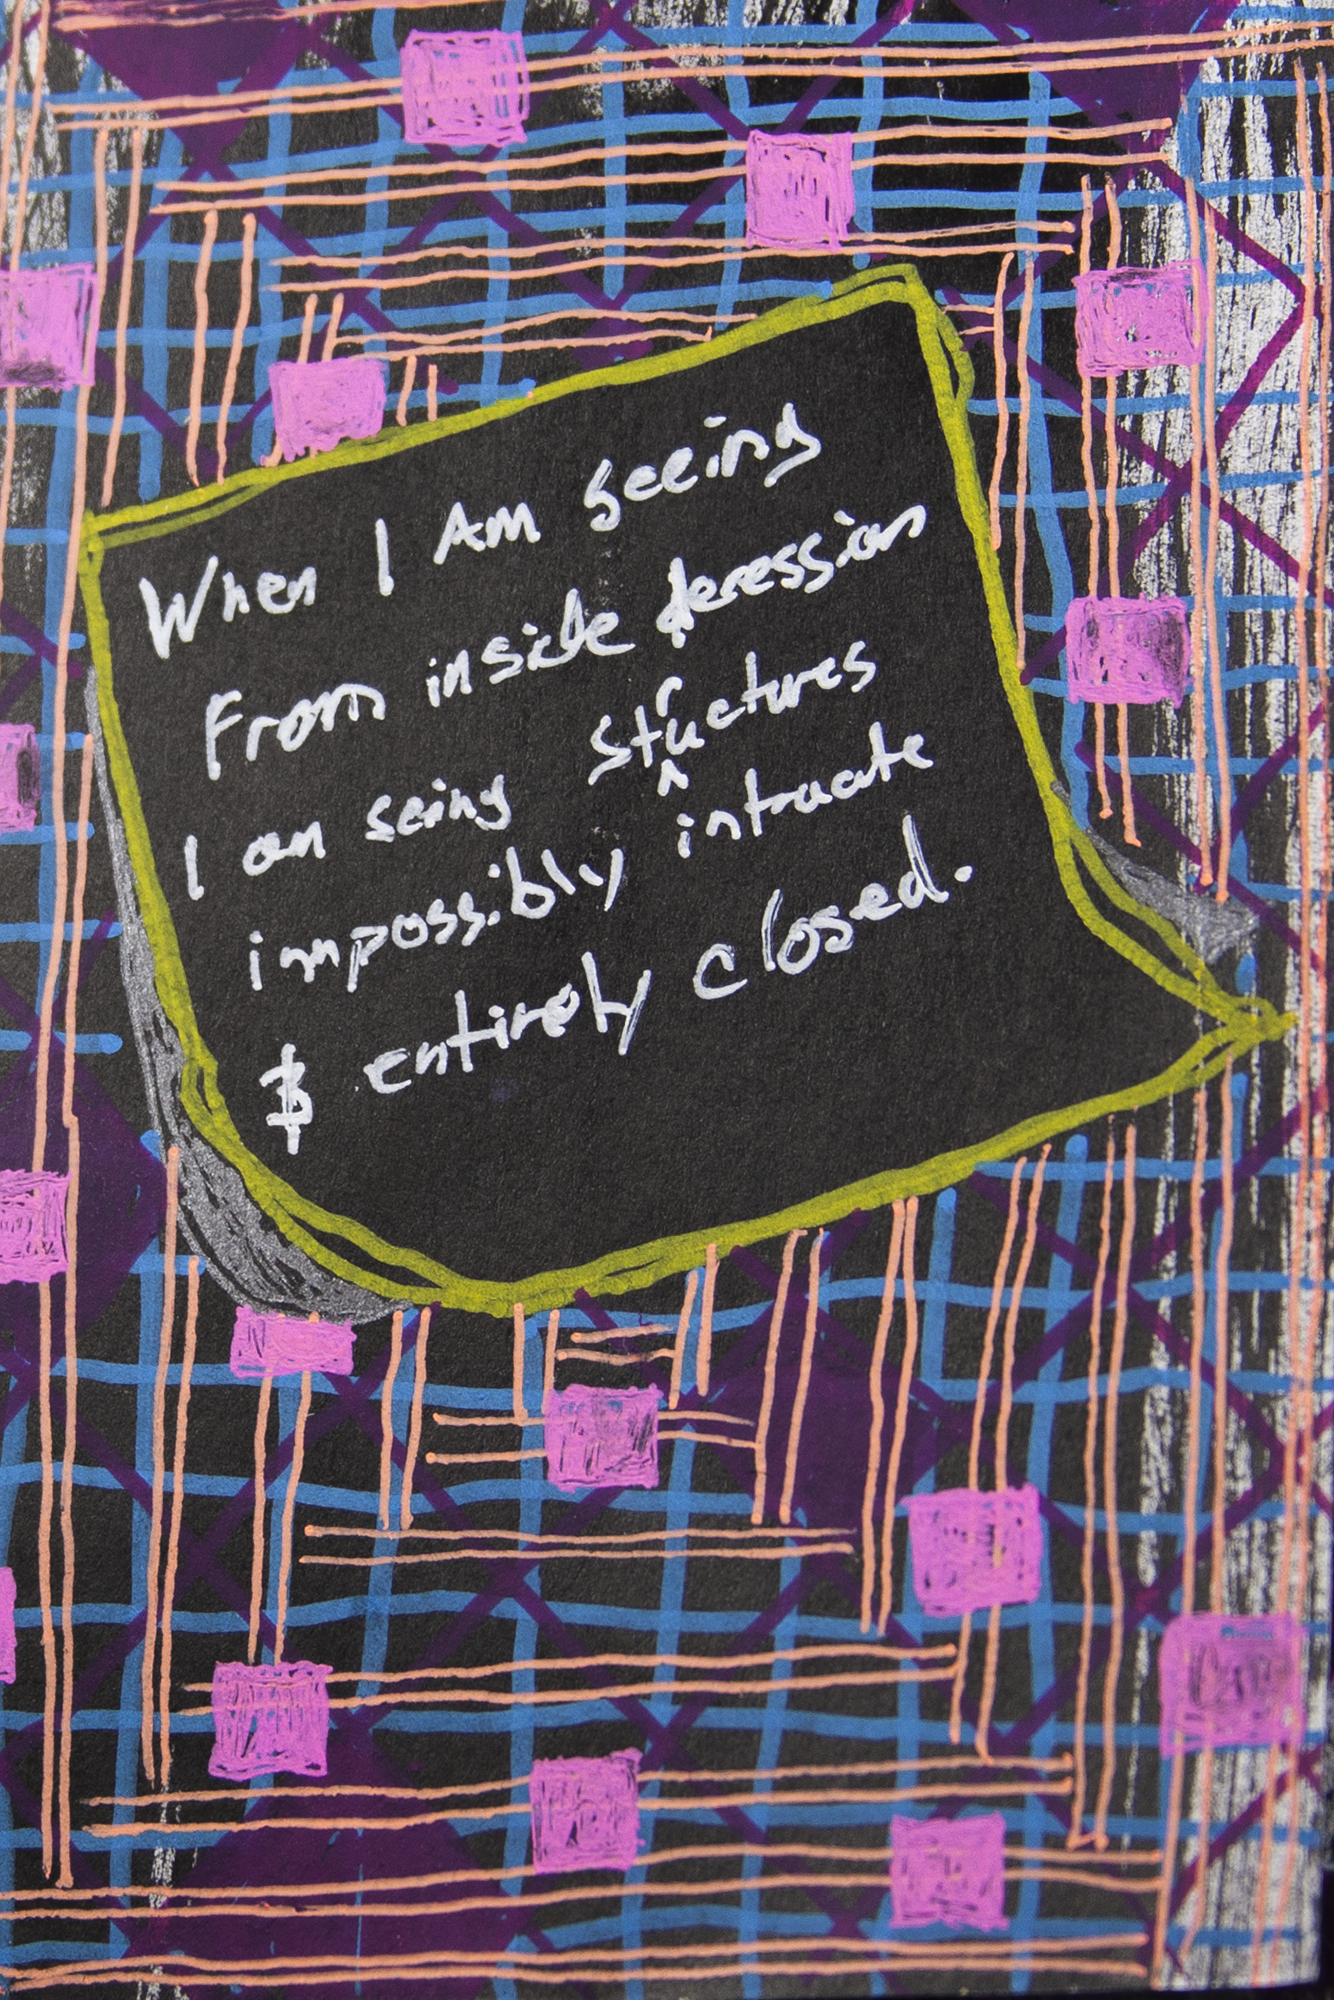 When I Am seeing
From inside deression
I am seing structures
impossibly intracate
$ entirely closed.